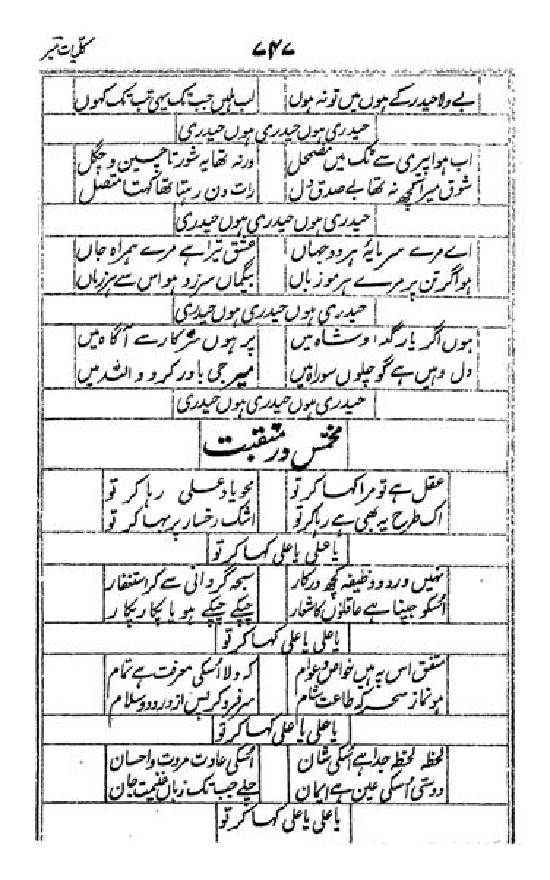 کلیات میر
۷۴۷
بے ولا حیدر کے ہوں میں تو نہ ہوں لب ہلیں جب تک یہی تب تک کہوں
حیدری ہوں حیدری ہوں حیدری
اب ہوا پیری سے ٹک میں مضمحل ورنہ تھا یہ شور تا چین و چگل
شوق میرا کچھ نہ تھا بے صدق دل رات دن رہتا تھا کہتا متصل
حیدری ہوں حیدری ہوں حیدری
اے مرے سرمایۂ ہر دو جہاں عشق تیرا ہے مرے ہمراہ جاں
ہو اگر تن پر مرے ہر مو زباں بیگماں سرزد ہو اس سے ہر زباں
حیدری ہوں حیدری ہوں حیدری
ہوں اگر یار گدا و شاہ میں پر ہوں سر کار سے آگاہ میں
دل وہیں ہے گو چلوں سو راہ میں میر جی باور کرو واللہ میں
حیدری ہوں حیدری ہوں حیدری
مخمس در منقبت
عقل ہے تو مرا کہا کر تو محو یاد علی رہا کر تو
اک طرح یہ بھی ہے رہا کر تو اشک رخسار پر بہا کر تو
یا علی یا علی کہا کر تو
نہیں ورد و وظیفہ کچھ درکار سبحہ گردانی سے کر استغفار
اسکو جپنا ہے عاقلوں کا شعار چپکے چپکے ہو یا پکار پکار
یا علی یا علی کہا کر تو
متفق اس پہ ہیں خواص و عوام کہ ولا اسکی معرفت ہے تمام
ہو نماز سحر کہ طاعت شام سر فرو کر پس از درود و سلام
یا علی یا علی کہا کر تو
لحظہ لحظہ جدا ہے اسکی شان اسکی عادت مروت و احسان
دوستی اسکی عین ہے ایمان چلے جب تک زباں غنیمت جان
یا علی یا علی کہا کر تو